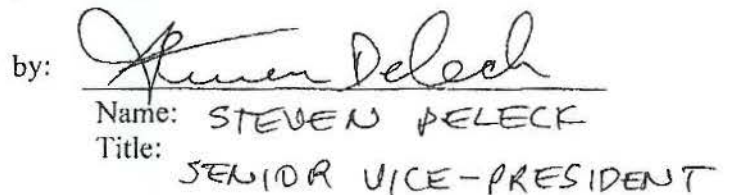 by: Steven Deleck
Name: STEVEN DELECK
Title:
SENIOR VICE-PRESIDENT